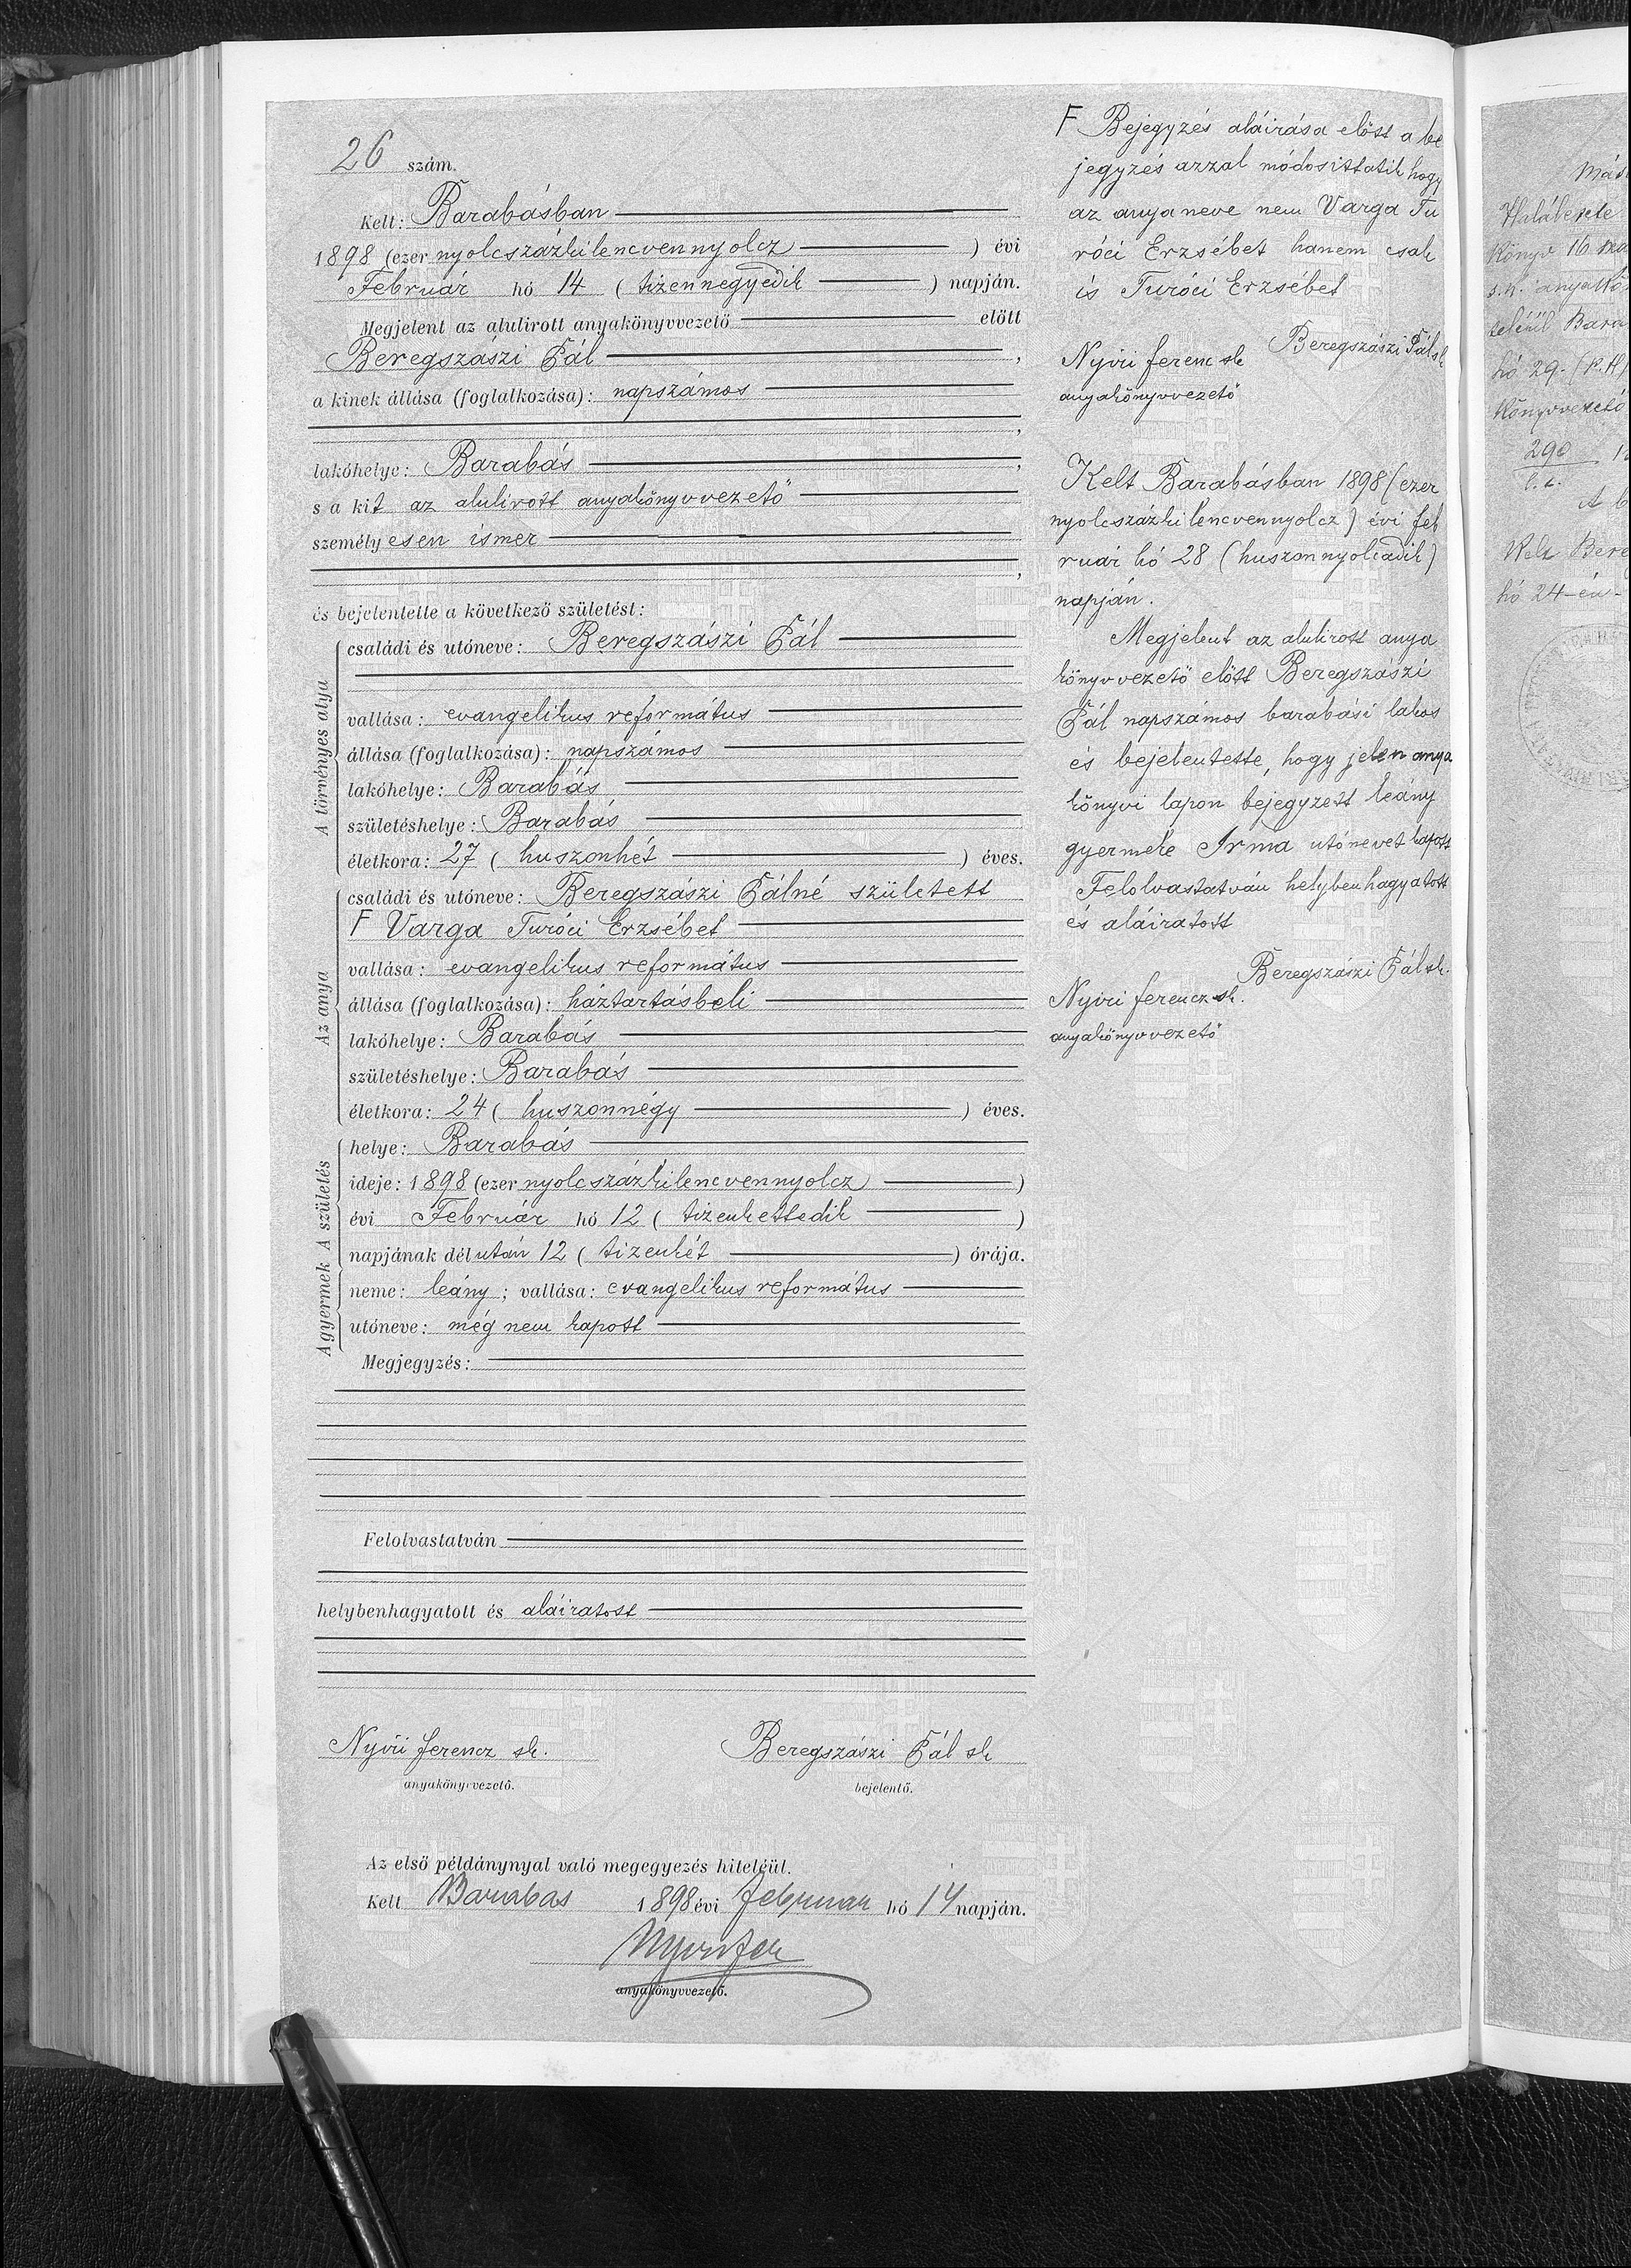 26 szám.
Kelt: Barabásban
1898 (ezer nyolcszázkilencvennyolcz) évi
Február hó 14 (tizennegyedik) napján.
Megjelent az alulirott anyakönyvvezető előtt
Beregszászi Pál,
a kinek állása (foglalkozása): napszámos
,
lakóhelye: Barabás,
s a kit az alulirott anyakönyvvezető
személyesen ismer
,
és bejelentette a következő születést:
A törvényes atya
családi és utóneve: Beregszászi Pál
vallása: evangelikus református
állása (foglalkozása): napszámos
lakóhelye: Barabás
születéshelye: Barabás
életkora: 27 (huszonhét) éves.
Az anya
családi és utóneve: Beregszászi Pálné született
F Varga Turóci Erzsébet
vallása: evangelikus református
állása (foglalkozása): háztartásbeli
lakóhelye: Barabás
születéshelye: Barabás
életkora: 24 (huszonnégy) éves.
A születés
helye: Barabás
ideje: 1898 (ezer nyolcszázkilencvennyolcz)
évi Február hó 12 (tizenkettedik)
napjának délután 12 (tizenkét) órája.
A gyermek
neme: leány; vallása: evangelikus református
utóneve: még nem kapott
Megjegyzés:
Felolvastatván
helybenhagyatott és aláiratott
Nyiri Ferencz sk. Beregszászi Pál sk
anyakönyvvezető. bejelentő.
Az első példánynyal való megegyezés hiteléül.
Kelt Barabas 1898 évi februar hó 14 napján.
Nyiri Fer
anyakönyvvezető.
F Bejegyzés aláirása előtt a be
jegyzés azzal módosittatik hogy
az anya neve nem Varga Tu
róci Erzsébet hanem csak
is Turóci Erzsébet
Beregszászi Pál sk
Nyiri Ferenc sk
anyakönyvvezető
Kelt Barabásban 1898 (ezer
nyolcszázkilencvennyolcz) évi feb
ruár hó 28 (huszonnyolcadik)
napján.
Megjelent az alulirott anya
könyvvezető előtt Beregszászi
Pál napszámos barabási lakos
és bejelentette, hogy jelen anya
könyvi lapon bejegyzett leány
gyermeke Irma utónevet kapott
Felolvastatván helybenhagyatott
és aláiratott
Beregszászi Pál sk.
Nyiri Ferencz sk.
anyakönyvvezető
Könyv 16
hó 29.
290
hó 24-én